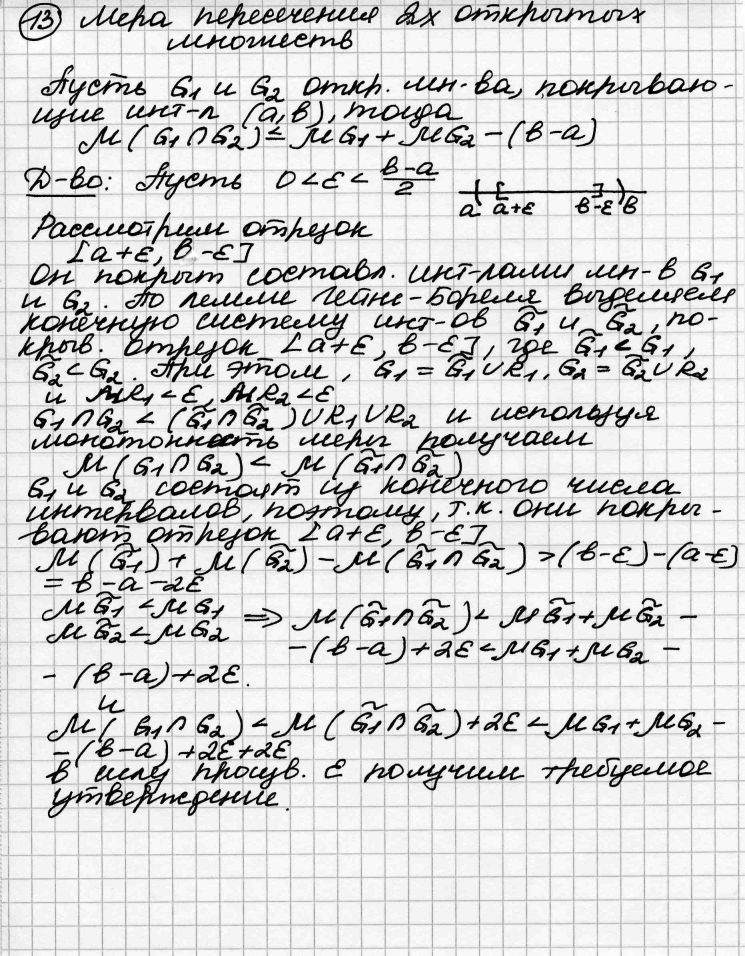 13 Мера пересечения 2х открытых
множеств
Пусть G₁ и G₂ откр. мн-ва, покрываю-
щие инт-л (a, в), тогда
М (G₁∩G₂) ≤ МG₁ + МG₂ - (в-a)
Д-во: Пусть 0 < ε < (в-a)/2
a a+ε в-ε в
Рассмотрим отрезок
[a+ε, в-ε]
Он покрыт составл. инт-лами мн-в G₁
и G₂. По лемме Гейне-Бореля выделяем
конечную систему инт-ов G̃₁ и G̃₂, по-
крыв. отрезок [a+ε, в-ε], где G̃₁ < G₁,
G̃₂ < G₂. При этом, G₁ = G̃₁∪R₁, G₂ = G̃₂∪R₂
и МR₁ < ε, МR₂ < ε
G₁∩G₂ < (G̃₁∩G̃₂)∪R₁∪R₂ и используя
монотонность меры получаем
М (G₁∩G₂) < М (G̃₁∩G̃₂)
G₁ и G₂ состоят из конечного числа
интервалов, поэтому, т.к. они покры-
вают отрезок [a+ε, в-ε]
М (G̃₁) + М (G̃₂) - М (G̃₁∩G̃₂) > (в-ε) - (a-ε]
= в - a - 2ε
МG̃₁ < МG₁
МG̃₂ < МG₂ => М (G̃₁∩G̃₂) < МG̃₁ + МG̃₂ -
- (в-a) + 2ε < МG₁ + МG₂ -
- (в-a) + 2ε.
и
М (G₁∩G₂) < М (G̃₁∩G̃₂) + 2ε < МG₁ + МG₂ -
- (в-a) + 2ε + 2ε
в силу произв. ε получим требуемое
утверждение.